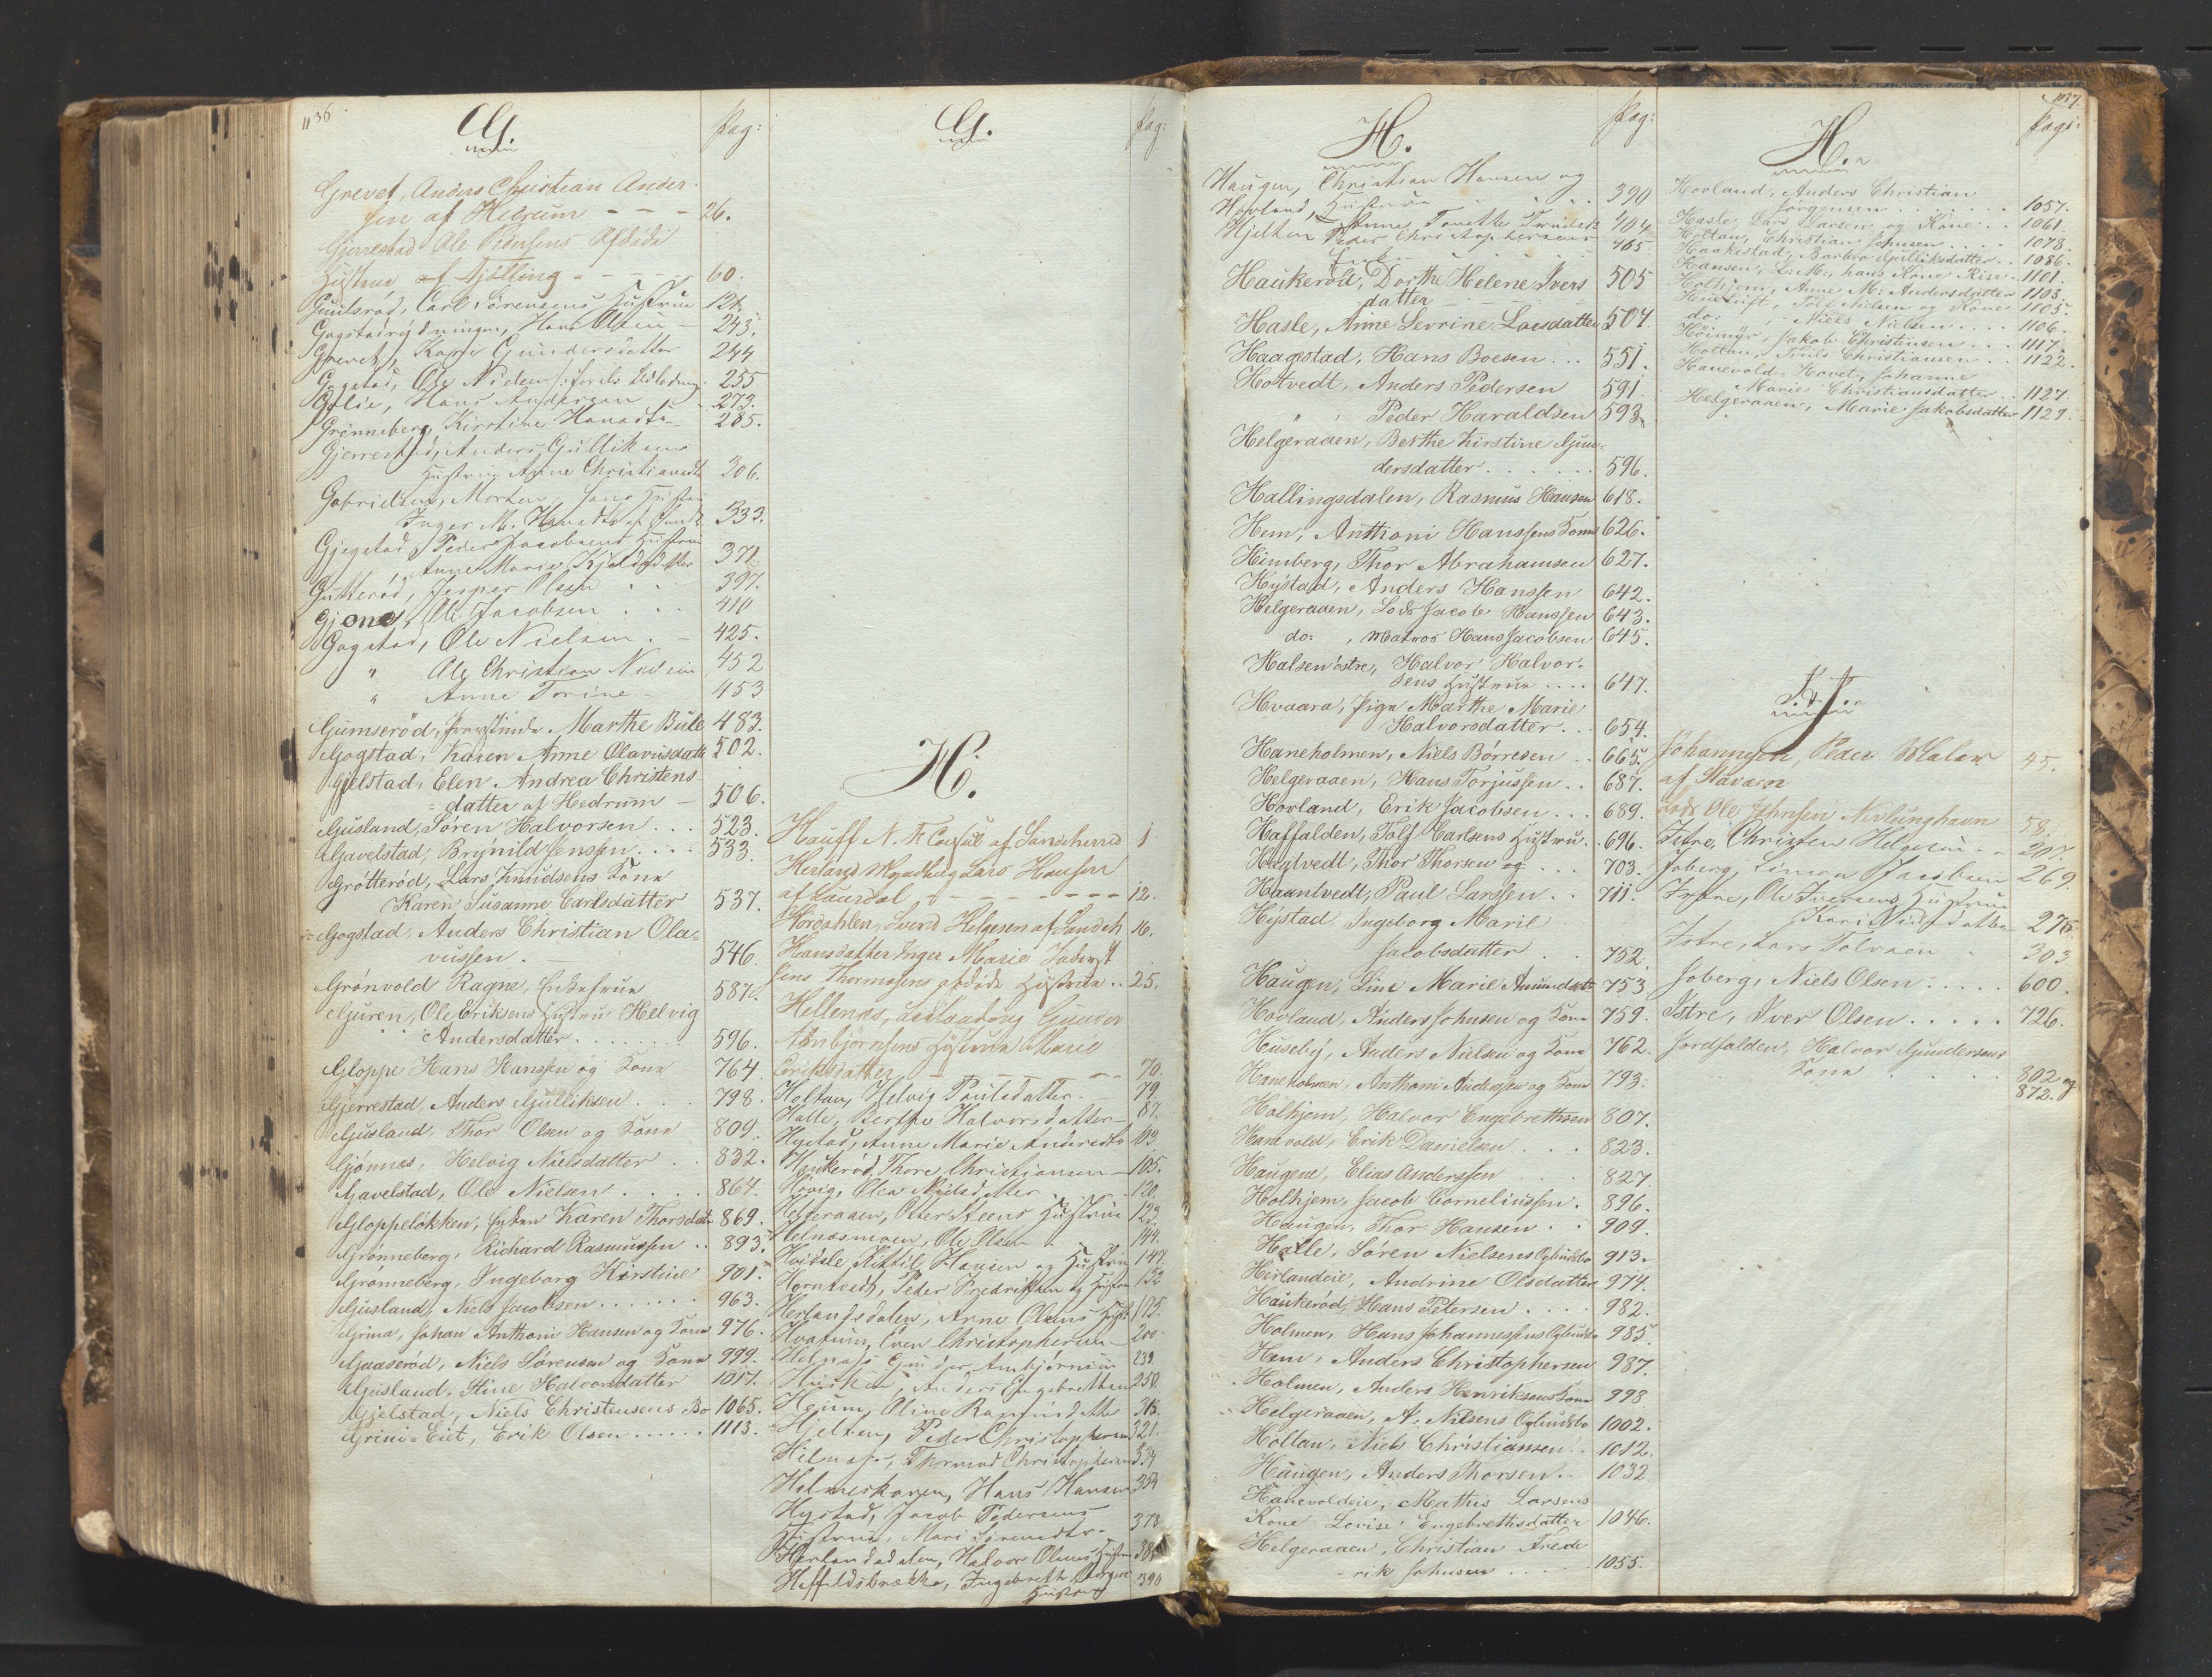 1136
G.
Pag:
Grevet, Anders Christian Ander-
sen af Hedrum - - - 26.
Gjerrestad Ole Pedersens Afdöde
Hustru af Tjölling - - - - 60.
Carl Sörensens Hustru 124.
Gogstadrydningen, Hans Olsen - 243.
Grevet, Kari Gundersdatter 244
Gogstad, Ole Nielsen 255
Golie, Hans Andersen 273.
Grönneberg, Kirstine Hansdtr 285.
Gjerrestad, Anders Gulliksens
Hustru Anne Christiansdtr 306.
Gabrielsen, Morten, hans Hustru
Inger M. 333.
Peder Jacobsens Hustru
Anne Marie 371.
Jesper Olsen 397.
Gjønes, Ole Jacobsen . . . 410
Gogstad, Ole Nielsen . - 425.
" Ole Christian Nielsen 452
" Anne Torine - 453
Gumserød, Marthe Bull 483.
Gogstad, Karen Anne Olavusdatter 502.
Gjelstad, Elen Andrea Christens-
datter af Hedrum - 506.
Gusland, Søren Halvorsen . . . 523.
Gavelstad, Brynild Jenssen . . . . 533.
Grøtterød, Lars Knudsens Kone
Karen Susanne Carlsdatter 537.
Gogstad, Anders Christian Ola-
vussen . - 546.
Grønvold Ragne, Enkefrue 587.
Guren, Ole Eriksens Hustru Helvig
Andersdatter . . . . . . . . 596.
Gloppe Hans Hanssen og Kone 764
Gjerrestad, Anders Gulliksen . . . 798.
Gusland, Thor Olsen og Kone 809.
Gjønnæs, Helvig Nielsdatter . . 832.
Gavelstad, Ole Nielsen . . . . 864.
Gloppeløkken, Enken Karen Thorsdatter 869.
Grønneberg, Richard Rasmussen . . 893.
Grønneberg, Ingeborg Kirstine 901.
Gusland, Niels Jacobsen . . . . . . 963.
Grina, Johan Anthoni Hansen og Kone 976.
Gaaserød, Niels Sørensen og Kone 999.
Gusland, Stine Halvorsdatter 1017.
Gjelstad, Niels Christensens Bo 1065.
Grini-Eiet, Erik Olsen . . . . . . 1113.
G.
Pag:
H.
Hauff N. Fr. Consul af Sandeherred 1.
Herland Myndling Lars Hansen
af Laurdal - - - - - - - 12.
Hordahlen, Svend Helgesen af Sandeh. 16.
Hansdatter Inger Marie
Thormesens afdöde Hustru . . 25.
Hellenæs, Gunder
Ambjørnsens Hustrue Marie
Eriksdatter - - - - 70.
Holtan, Helvig Poulsdatter. - 79.
Halle, Berthe Halvorsdatter - 87.
Hystad, Anne Marie Andersdtr 103.
Haukerød, Thore Christiansen - 105.
Hovig, Olea Nielsdatter 120.
Helgeraaen, Peter Steens Hustrue 123
Helnæsmoen, Ole Olsen 144.
Kittil Hansen og Hustru 147
Horntvedt, Peder Fredriksen og Hustru 152
Herlandsdalen, Arne Olsens Hustr. 175.
Hvatum, Even Christophersen 200.
Ambjørnsen 239.
Anders Engebretsen 250.
Heum, Oline Rasmusdatter 315.
Hjelten, Peder Christophersen 321.
Christophersen 334
Holmeskoven, Hans Hansen 354
Hystad, Jacob Pedersens
Hustrue, Mari Sörensdtr. - 378
Herlandsdalen, Halvor Olsens Hustru 38
Ingebreth
Hustrue 390
1137.
H.
Pag:
Haugen, Christian Hansen og
Hustrue . . . . 390
Hovland, Anne Tonette 404
Hjelten Peder Christophersens 465
Haukerød, Dorthe Helene Ivers
datter - - - - 505
Hasle, Anne Sevrine Larsdatter 507.
Haagestad, Hans Boesen . . . 551.
Hotvedt, Anders Pedersen 591.
" " Peder Haraldsen 593.
Helgeraaen, Berthe Kirstine Gun-
dersdatter . . . . . . 596.
Hallingsdalen, Rasmus Hansen 618.
Hem, Anthoni Hanssens Kone 626.
Himberg, Thor Abrahamsen 627.
Hystad, Anders Hanssen 642.
Helgeraaen, Lods Jacob Hanssen 643.
do: , Matros Hans Jacobsen 645.
Halsen østre, Halvor Halvor-
sens Hustrue . . . . 647.
Hvaara, Pige Marthe Marie
Halvorsdatter . . . 654.
Haneholmen, Niels Børresen . . 665.
Helgeraaen, Hans Torjussen . . 687.
Hovland, Erik Jacobsen . . . 689.
Haffalden, Tolf Carlsens Hustru . 696.
Thor Thorsen og . . . 703.
Haantvedt, Paul Larssen . . 711.
Hystad Ingeborg Marie
Jacobsdatter . . 752.
Haugen, Line Marie Amundsdtr 753
Hovland, Anders Johnsen og Kone 759.
Huseby, Anders Nielsen og Kone 762.
Haneholmen, Anthoni Andersen og Kone 793.
Holhjem, Halvor Engebrethsen 807.
Hanevold, Erik Danielsen . . . 823.
Haugene, Elias Anderssen 827.
Holhjem, Jacob Corneliussen . 896.
Haugen, Thor Hansen . . 909.
Halle, Søren Nielsens Opbudsbo 913.
Herlandeie, Andrine Olsdatter 974.
Haukerød, Hans Petersen . . . . 982.
Holmen, Hans Johannessens Opbudsbo 985
Hem, Anders Christophersen 987.
Holmen, Anders Henriksens Kone 998
Helgeraaen, A. Nilsens Opbudsbo 1002.
Holtan, Niels Christiansen . . 1012.
Haugen, Anders Thorsen . . 1032.
Hanevoldeie, Mathis Larsens
Kone Lovise Engebrethsdatter 1046.
Helgeraaen, Christian Frede
rik Johnsen . . . . 1055.
H.
Pag:
Hovland, Anders Christian
Jørgensen . . . . . . . 1057.
Hasle Lars Larsen og Kone . . 1061.
Holtan, Christian Johnsen . . . . 1078.
Haakestad, Barbro Gulliksdatter . . 1086.
Hansen, L. M., hans Kone Rise . 1101.
Holhjem, Anne M. Andersdatter 1103.
Tolf Nilsen og Kone 1105.
do: , Niels Nilsen . . . . 1106.
Høimyr, Jakob Christensen . . . 1117.
Holtan, Truls Christiansen . . 1122.
Hanevold-Hovet, Johanne
Marie Christiansdatter . . 1127.
Helgeraaen, Marie Jakobsdatter 1129.
I. J.
Johannesen, Peder Maler
af Stavern 45.
Ole Johnsen Nevlunghavn 58.
Istre, Christen Helgesen - - 207.
Joberg, Simon Jacobsen 269.
Istre, Ole Iversens Hustrue
Kari Nielsdatter 276.
Istre, Lars Tolvsen 303
Joberg, Niels Olsen . . . . . 600.
Istre, Iver Olsen . . . . . 726.
Jordfalden, Halvor Gundersens
Kone . . . . . 802 og
872.